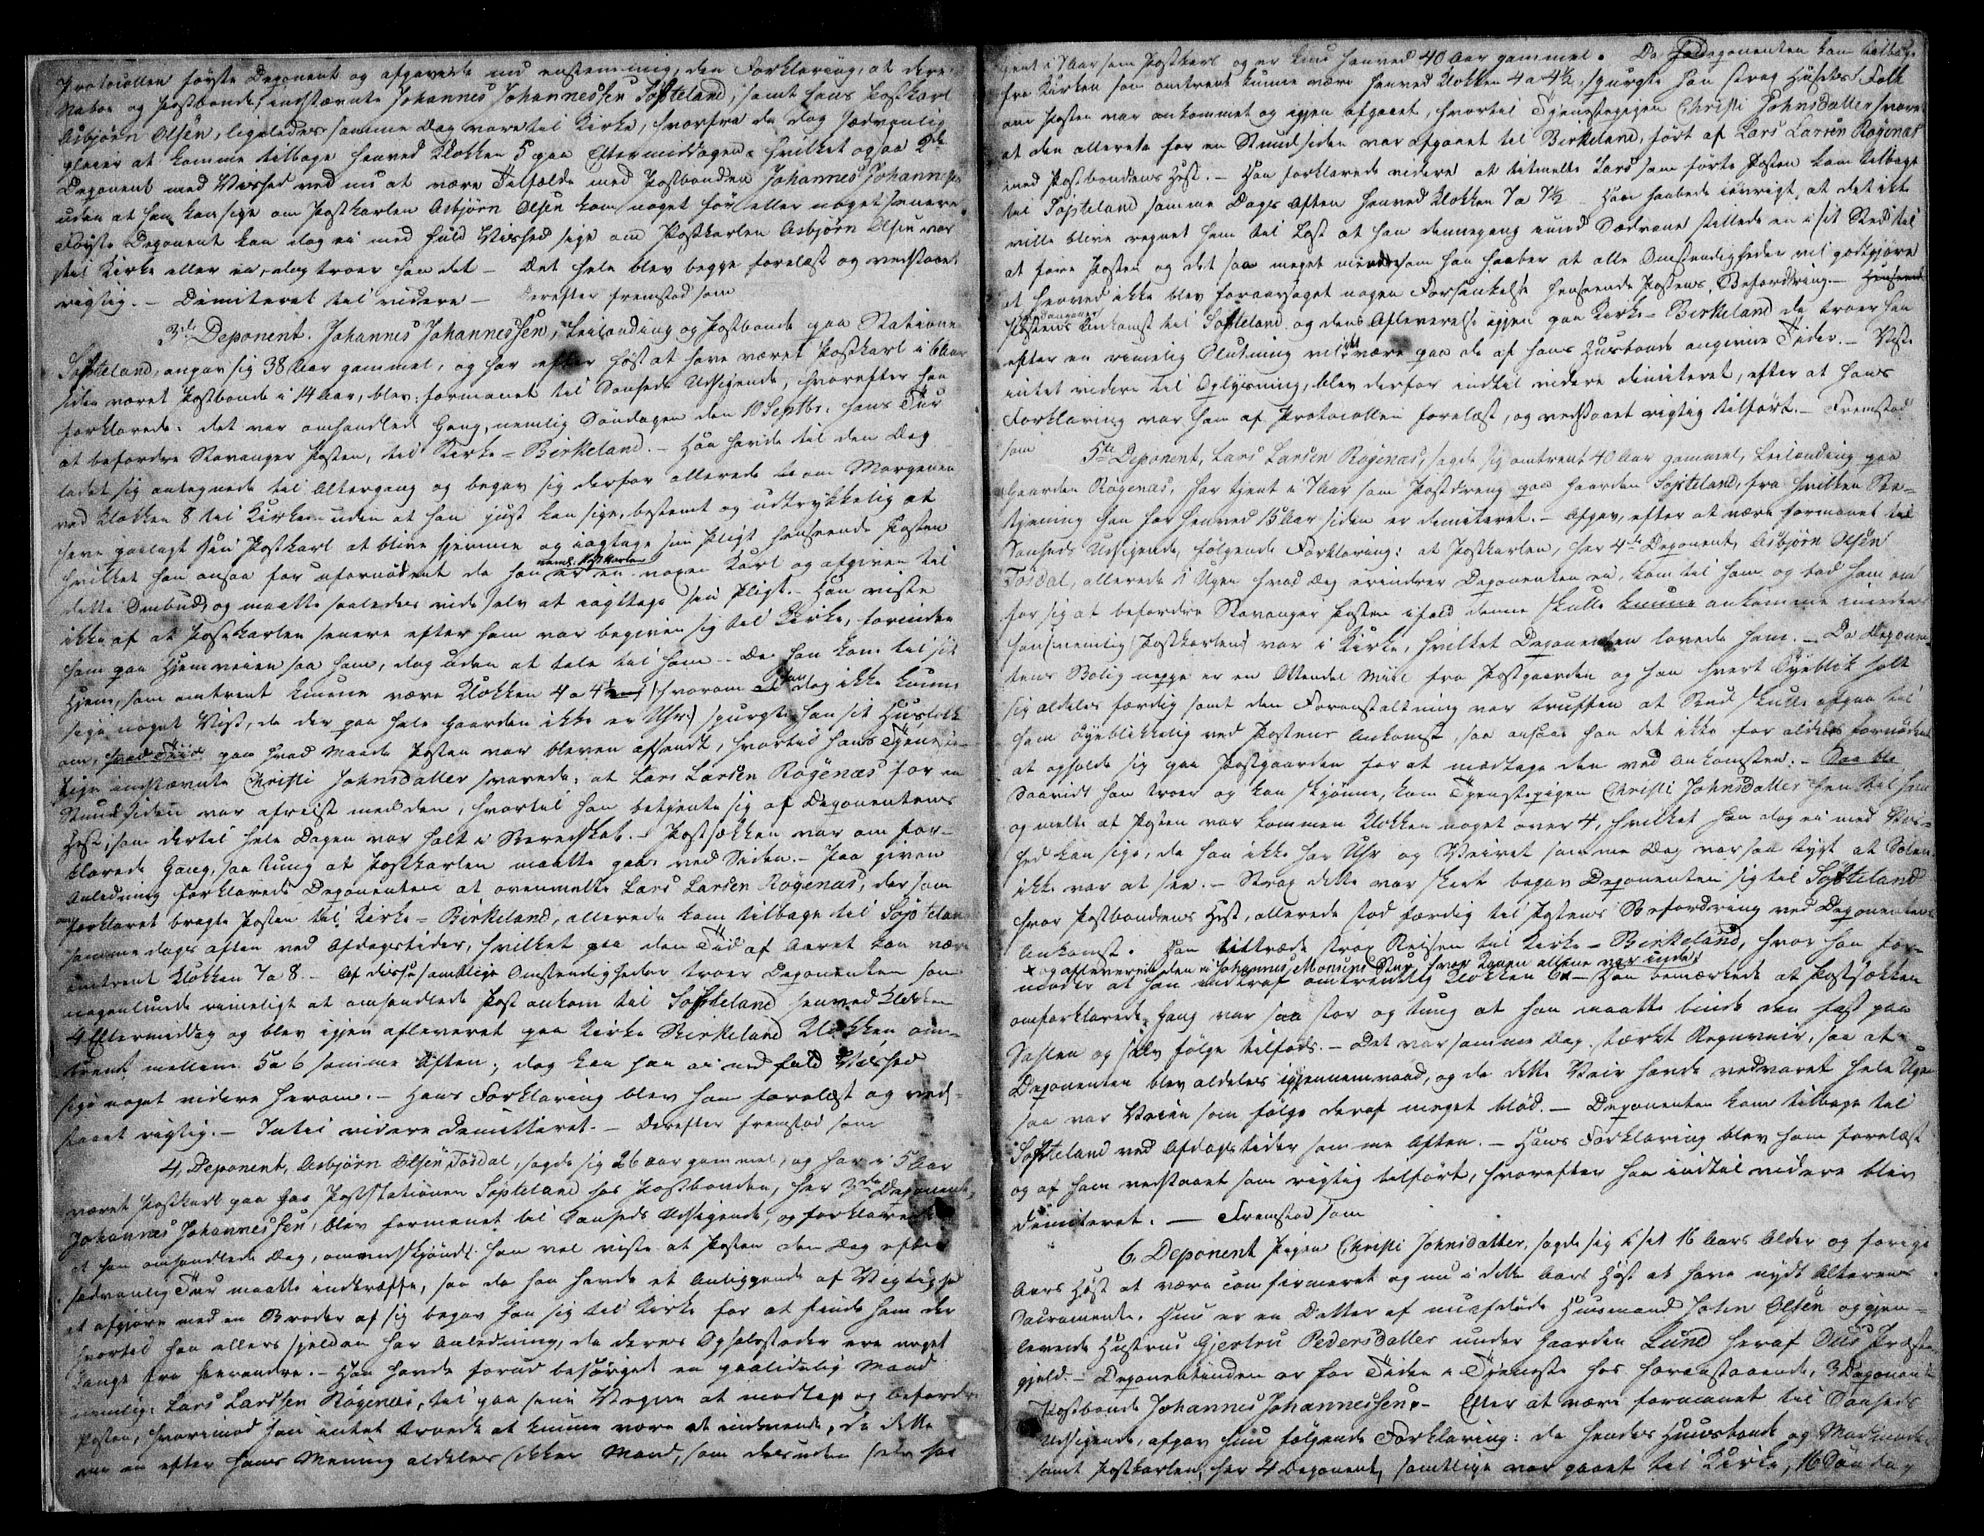 Protocollen første Deponent og afgavede nu enstemmig, den Forklaring, at dere
Naboe og Postbonde, indstævnte Johannes Johannessen Søfteland, samt hans Postkarl
Asbjørn Olsen, ligeledes samme Dag vare til Kirke, hvorfra de dog sædvanlig
pleier at komme tilbage henved Klokken 5 paa Eftermiddagen, hvilket ogsaa 2de
Deponent med Vished ved nu at være Tilfælde med Postbonden Johannes Johannes
uden at han kan sige om Postkarlen Asbjørn Olsen kom noget før eller noget senere
Første Deponent kan dog ei med fuld Vished sige om Postkarlen Asbjørn Olsen var
til Kirke eller ei, dog troer han det – Det hele blev begge forelæst og vedstaaet
rigtig. – Dimitteret til videre – Derefter fremstod som
3de Deponent. Johannes Johannessen, Leilænding og Postbonde paa Statione
Søfteland, angav sig 38 Aar gammel, og har efter først at have været Postkarl i 6 Aar
siden været Postbonde i 14 Aar, blev formanet til Sandheds Udsigende, hvorefter han
forklarede: det var omhandlede Gang, nemlig Søndagen den 10 Septbr. hans Tur
at befordre Stavanger Posten, til Kirke-Birkeland. – Han havde til den Dag
ladet sig antegnede til Altergang og begav sig derfor allerede om Morgenen
ved Klokken 8 til Kirke uden at han just kan sige, bestemt og udtrykkelig at
have paalagt sin Postkarl at blive hjemme og iagttage sin Pligt henseende Posten
hvilket han ansaa for ufornødent da han nemlig Postkarlen er en voxen Karl og afgiven til
dette Ombud, og maatte saaledes vide selv at iagttage sin Pligt. – Han viste
ikke af at Postkarlen senere efter ham var begiven sig til Kirke, forinden
han paa Hjemveien saa ham, dog uden at tale til ham – Da han kom til sit
Hjem, som omtrent kunne være Klokken 4 a 4½ (hvorom han dog ikke kunne
sige noget Vist, da der paa hele Gaarden ikke er Uhr) spurgte han sit Huusfolk
om, hvad Tiid paa hvad Maade Posten var bleven afsendt, hvortil hans Tjeneste-
pige indstævnte Christi Johnsdatter svarede: at Lars Larsen Røgenæs for en
Stund siden var afreist med den, hvortil han betjente sig af Deponentens
Hest, som dertil hele Dagen var holdt i Beredskab. – Postsækken var om for-
klarede Gang, saa tung at Postkarlen maatte gaae ved Siden. – Paa given
Anledning forklarede Deponenten at ovenmeldte Lars Larsen Røgenæs, der som
forklaret bragte Posten til Kirke-Birkeland, allerede kom tilbage til Søftelan
samme dags aften ved Afdagstider, hvilket paa den Tid af Aaret kan være
omtrent Klokken 7 a 8. – Af disse samtlige Omstændigheder troer Deponenten som
nogenlunde rimeligt at omhandlede Post ankom til Søfteland henved Klokken
4 Eftermiddag og blev igjen afleveret paa Kirke Birkeland Klokken om-
trent mellem 5 a 6 samme Aften; dog kan han ei med fuld Vished
sige noget videre herom. – Hans Forklaring blev ham forelæst og ved-
staaet rigtig. – Intil videre demitteret. – Derefter fremstod som
4. Deponent, Asbjørn Olsen Tosdal, sagde sig 26 aar gammel, og har i 5 Aar
været Postkarl paa Poststationen Søfteland hos Postbonden, her 3de Deponent,
Johannes Johannessen, blev formanet til Sandheds Udsigende, og forklarede
at han omhandlede Dag, omendskjøndt han vel viste at Posten den Dag efter
sædvanlig Tur maatte indtræffe, saa da han havde et Anliggende af Vigtighed
at afgjøre med en Broder af sig begav han sig til Kirke for at finde ham der
hvortil han ellers sjelden har Anledning, da deres Opholdssteder ere noget
langt fra hverandre. – Han havde forud besørget en paalidelig Mand
nemlig Lars Larssen Røgenæs, til paa sine Vegne at modtage og befordre
Posten, hvorimod han intet troede at kunne være at indvende, da dette
var en efter hans Mening aldeles sikker Mand, som desuden selv har
tjent i 7 Aar som Postkarl og er kun henved 40 Aar gammel. Da Deponenten kom tilbage
fra Kirken som omtrent kunne være henved Klokken 4 a 4½, spurgte han strax Husets Folk
om Posten var ankommet og igjen afgaaet, hvortil Tjenestepigen Christi Johnsdatter svare
at den allerede for en Stund siden var afgaaet til Birkeland, ført af Lars Larsen Røgenæs
med Postbondens Hest. – Han forklarede videre at bemeldte Lars som førte Posten kom tilbage
til Søfteland samme Dags Aften henved Klokken 7 a 7½ – Han haabede iøvrigt at det ikke
ville blive regnet ham til Last at han dennegang imod Sædvane stillede en i sit Sted til
at føre Posten og det saa meget mindre som han haaber at alle Omstændigheder vil godtgjøre
at herved ikke blev foraarsaget nogen Forsinkelse henseende Postens Befordring. –
Postens Ankomst til Søfteland og dens Afleverelse igjen paa Kirke-Birkeland da troer han
efter en rimelig Slutning at være paa de af hans Husbonde angivne Tider. – Viste
intet videre til Oplysning, blev derfor indtil videre dimitteret, efter at hans
Forklaring var ham af Protocollen forelæst, og vedstaaet rigtig tilført. – Fremstod
som 5te Deponent, Lars Larsen Røgenæs, sagde sig omtrent 40 Aar gammel, Leilænding paa
Gaarden Røgenæs, har tjent i 7 Aar som Postdreng paa Gaarden Søfteland, fra hvilken Be-
tjening han for henved 13 Aar siden er demitteret. – Afgav, efter at være formanet til
Sandheds Udsigende, følgende Forklaring: at Postkarlen, her 4de Deponent, Asbjørn Olsen
Tosdal, allerede i Ugen hvad Dag erindrer Deponenten ei, kom til ham og bad ham om
for sig at befordre Stavanger Posten ifald denne skulle kunne ankomme medens
han (nemlig Postkarlen) var i Kirke, hvilket Deponenten lovede ham. – Da Deponen
tens Bolig neppe er en Ottendel Miil fra Postgaarden og han hvert Øyeblik holdt
sig aldeles færdig samt den Foranstaltning var truffen at Bud skulle afgaae til
ham øyeblikkelig ved Postens Ankomst, saa ansaae han det ikke for aldeles fornødent
at opholde sig paa Postgaarden for at modtage den ved Ankomsten. –
Saavidt han troer og kan skjønne, kom Tjenestepigen Christi Johnsdatter hen til ham
og meldte at Posten var kommen Klokken noget over 4, hvilket han dog ei med Vis-
hed kan sige, da han ikke har Uhr og Veiret samme Dag var saa tygt at Solen
ikke var at see. – Strax dette var skeet begav Deponenten sig til Søfteland
hvor Postbondens Hest, allerede stod færdig til Postens Befordring ved Deponentens
Ankomst. Han tiltræde strax Reisen til Kirke-Birkeland, hvor han for-
x og afleverede den i Johannes Monsens Stue, hvor Konen allene var inde,
moder at han indtraf omtrentlig Klokken 6 x – Han bemærkede at Postsækken
omforklarede Gang var saa stor og tung at han maatte binde den fast paa
Sadlen og selv følge tilfods. – Det var samme Dag stærkt Regnveir, saa at
Deponenten blev aldeles igjennemvaad, og da dette Veir havde vedvaret hele Ugen
saa var Veien som følge deraf meget blød. – Deponenten kom tilbage til
Søfteland ved Afdags tider samme Aften. – Hans Forklaring blev ham forelæst
og af ham vedstaaet som rigtig tilført, hvorefter han indtil videre blev
dimitteret. – Fremstod som
6. Deponent Pigen Christi Johnsdatter, sagde sig i sit 16 Aars Alder og forige
Aars Høst at være confirmeret og nu i dette Aars Høst at have nydt Alterens
Sacramente. Hun er en Datter af Huusmand John Olsen og gjen-
levende Hustrue Gjertru Pedersdatter under Gaarden Lund heraf Ous Præste
gjeld. – Deponentinden er for Tiden i Tjeneste hos foranstaaende, 3 Deponent
Postbonde Johannes Johannessen. – Efter at være formanet til Sandheds
Udsigende, afgav hun følgende Forklaring: da hendes Huusbonde og Madmoder
samt Postkarlen, her 4 Deponent, samtlige var gaaet til Kirke, Søndag